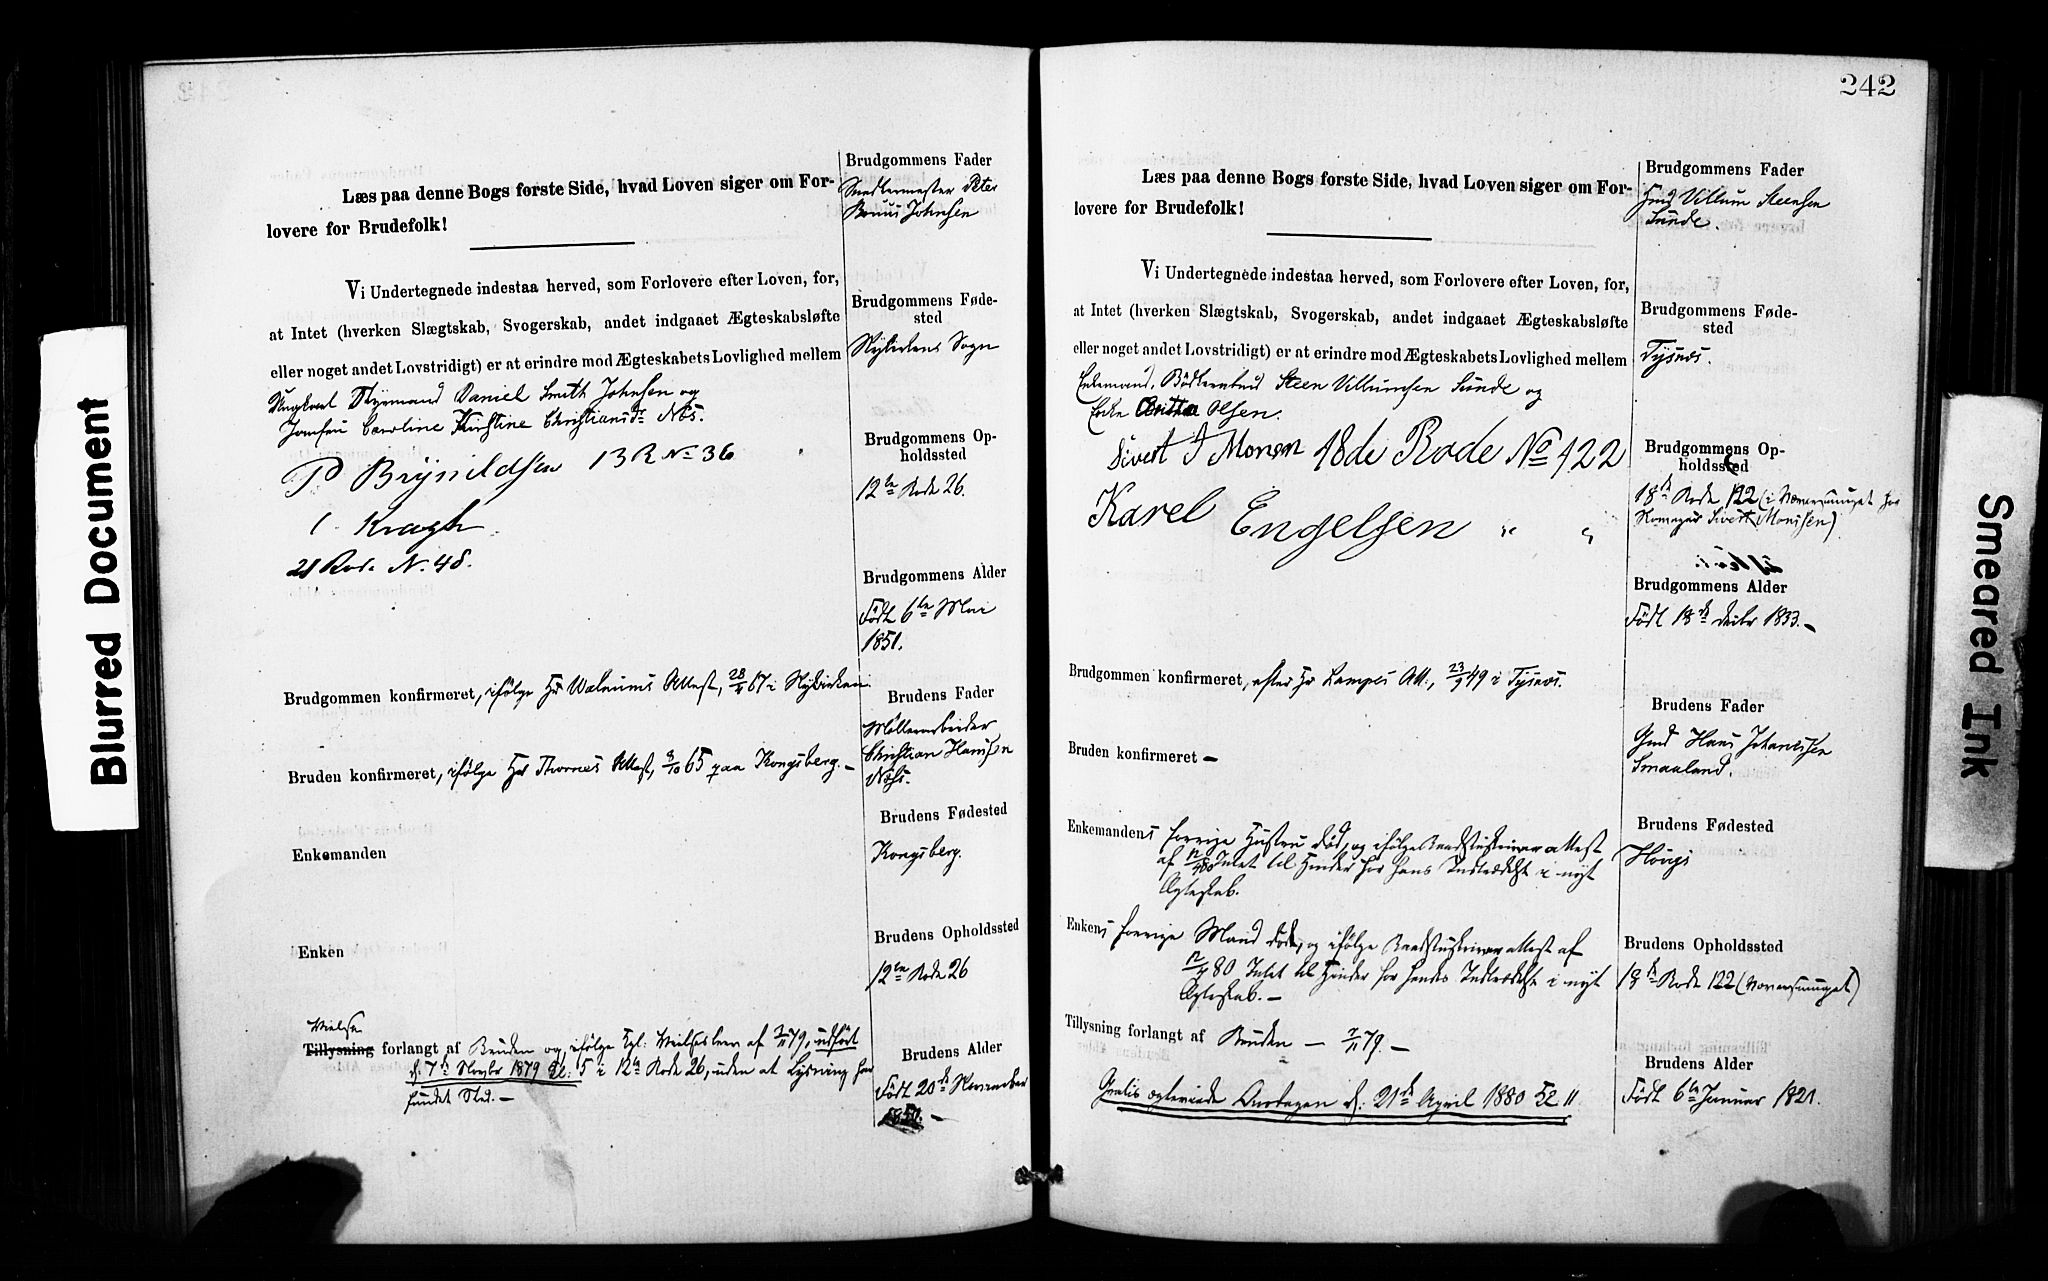 Blurred Document
Læs paa denne Bogs første Side, hvad Loven siger om For-
lovere for Brudefolk!
Vi Undertegnede indestaa herved, som Forlovere efter Loven, for,
at Intet (hverken Slægtskab, Svogerskab, andet indgaaet Ægteskabsløfte
eller noget andet Lovstridigt) er at erindre mod Ægteskabets Lovlighed mellem
Ungkarl Styrmand Daniel Smith Johnsen og
Jomfru Caroline Kirstine Christiansdr Næs.
P Brynildsen 13 R No 36
Kragh
21 Rode N. 48.
Brudgommen konfirmeret, ifølge Hr Walnums Attest, 67 i Nykirken
Bruden konfirmeret, ifølge Hr Thornes Attest, 65 paa Kongsberg. –
Enkemanden
Enken
Vielse
Tillysning forlangt af Bruden og, ifølge Kgl: Vielsesbrev af 79, udført
d. 7de Novbr 1879 Kl: 5 i 12te Rode 26, uden at Lysning har
fundet Sted. –
Brudgommens Fader
Snedkermester Peter
Johnsen
Brudgommens Føde-
sted
Nykirkens Sogn
Brudgommens Op-
holdssted
12te Rode 26.
Brudgommens Alder
Født 6te Mai
1851.
Brudens Fader
Møllearbeider
Christian Hansen
Næss.
Brudens Fødested
Kongsberg.
Brudens Opholdssted
12te Rode 26
Brudens Alder
Født 20de November
1850. –
242
Læs paa denne Bogs første Side, hvad Loven siger om For-
lovere for Brudefolk!
Vi Undertegnede indestaa herved, som Forlovere efter Loven, for,
at Intet (hverken Slægtskab, Svogerskab, andet indgaaet Ægteskabsløfte
eller noget andet Lovstridigt) er at erindre mod Ægteskabets Lovlighed mellem
Enkemand, Steen Villumsen Sunde og
Enke Olsen.
Sivert Monsen 18de Rode No 122
Karel Engelsen " "
Brudgommen konfirmeret, efter Hr Lampes Att., 23/9 49 i Tysnæs.
Bruden konfirmeret –
Enkemandens forrige Hustru død, og ifølge Raadstueskriverattest
af Intet til Hinder for hans Indtrædelse i nyt
Ægteskab.
Enkens forrige Mand død, og ifølge Raadstueskriverattest af
12/4 80 Intet til Hinder for hendes Indtrædelse i nyt
Ægteskab. –
Tillysning forlangt af Bruden – 79. –
Gratis ægteviede Onsdagen d. 21de April 1880 Kl 11
Brudgommens Fader
Gmd Villum Steensen
Sunde.
Brudgommens Føde-
sted
Tysnæs.
Brudgommens Op-
holdssted
18de Rode 122 (i hos
Sivert Monsen)
Brudgommens Alder
Født 18de Decbr 1833. –
Brudens Fader
Gmd Hans Johannesen
Smaaland.
Brudens Fødested
Hougs
Brudens Opholdssted
18de Rode 122
Brudens Alder
Født 6te Januar 1821.
Smeared Ink